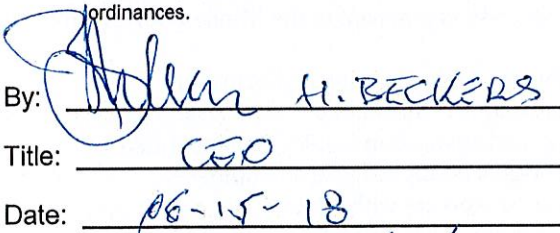 ordinances.
By: H. BECKERS
Title: CEO
Date: 06-15-18